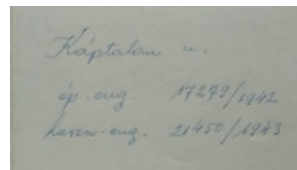 Káptalan u.
ép. eng. 17279/1942
haszn-eng. 21450/1943